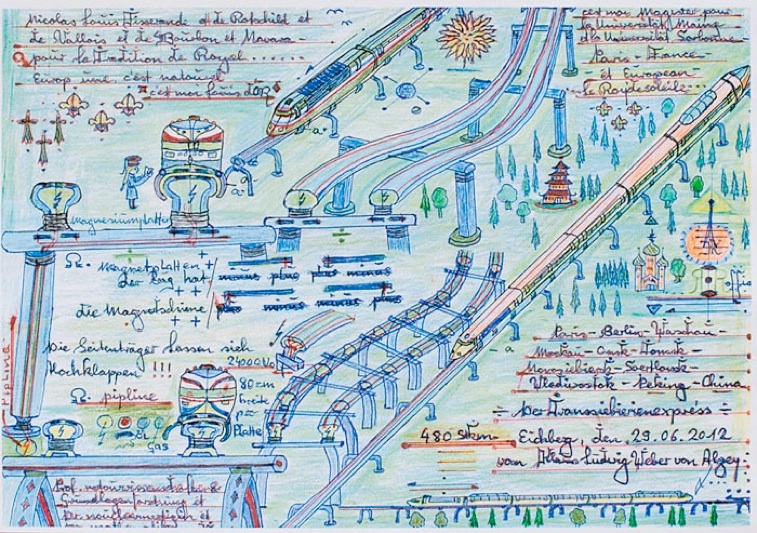 Nicolas Louis Tisserande et de Rotschild et
de Vallois et de Bourbon et Navara
pour la Tradition de Royal
Europ une c'est naturiel
c'est moi Louis d'OR
c'est moi Magister pour
la Universität Mainz
et la Universität Sorbonne
Paris - France
et European
Le Roy de soleile
Magnesiumplatten
Magnetplatten +
der Zug hat
minus plus plus minus
die Magnetschiene
plus minus minus plus
Die Seitenträger lassen sich
Hochklappen !!!
24000 Vo
80 cm
breite
Platte
pipline
Gas
Paris - Berlin - Waschau -
Moskau - Omsk - Tomsk -
Novosibirsk - Swerlowsk -
Vladiwostok - Peking - China
÷ Der Transsibirienexpress ÷
480 Stkm
Eichberg, den 29.06.2012
vom Klaus Ludwig Weber von Alzey
Prof. naturwissenschaften
Grundlagenforschung et